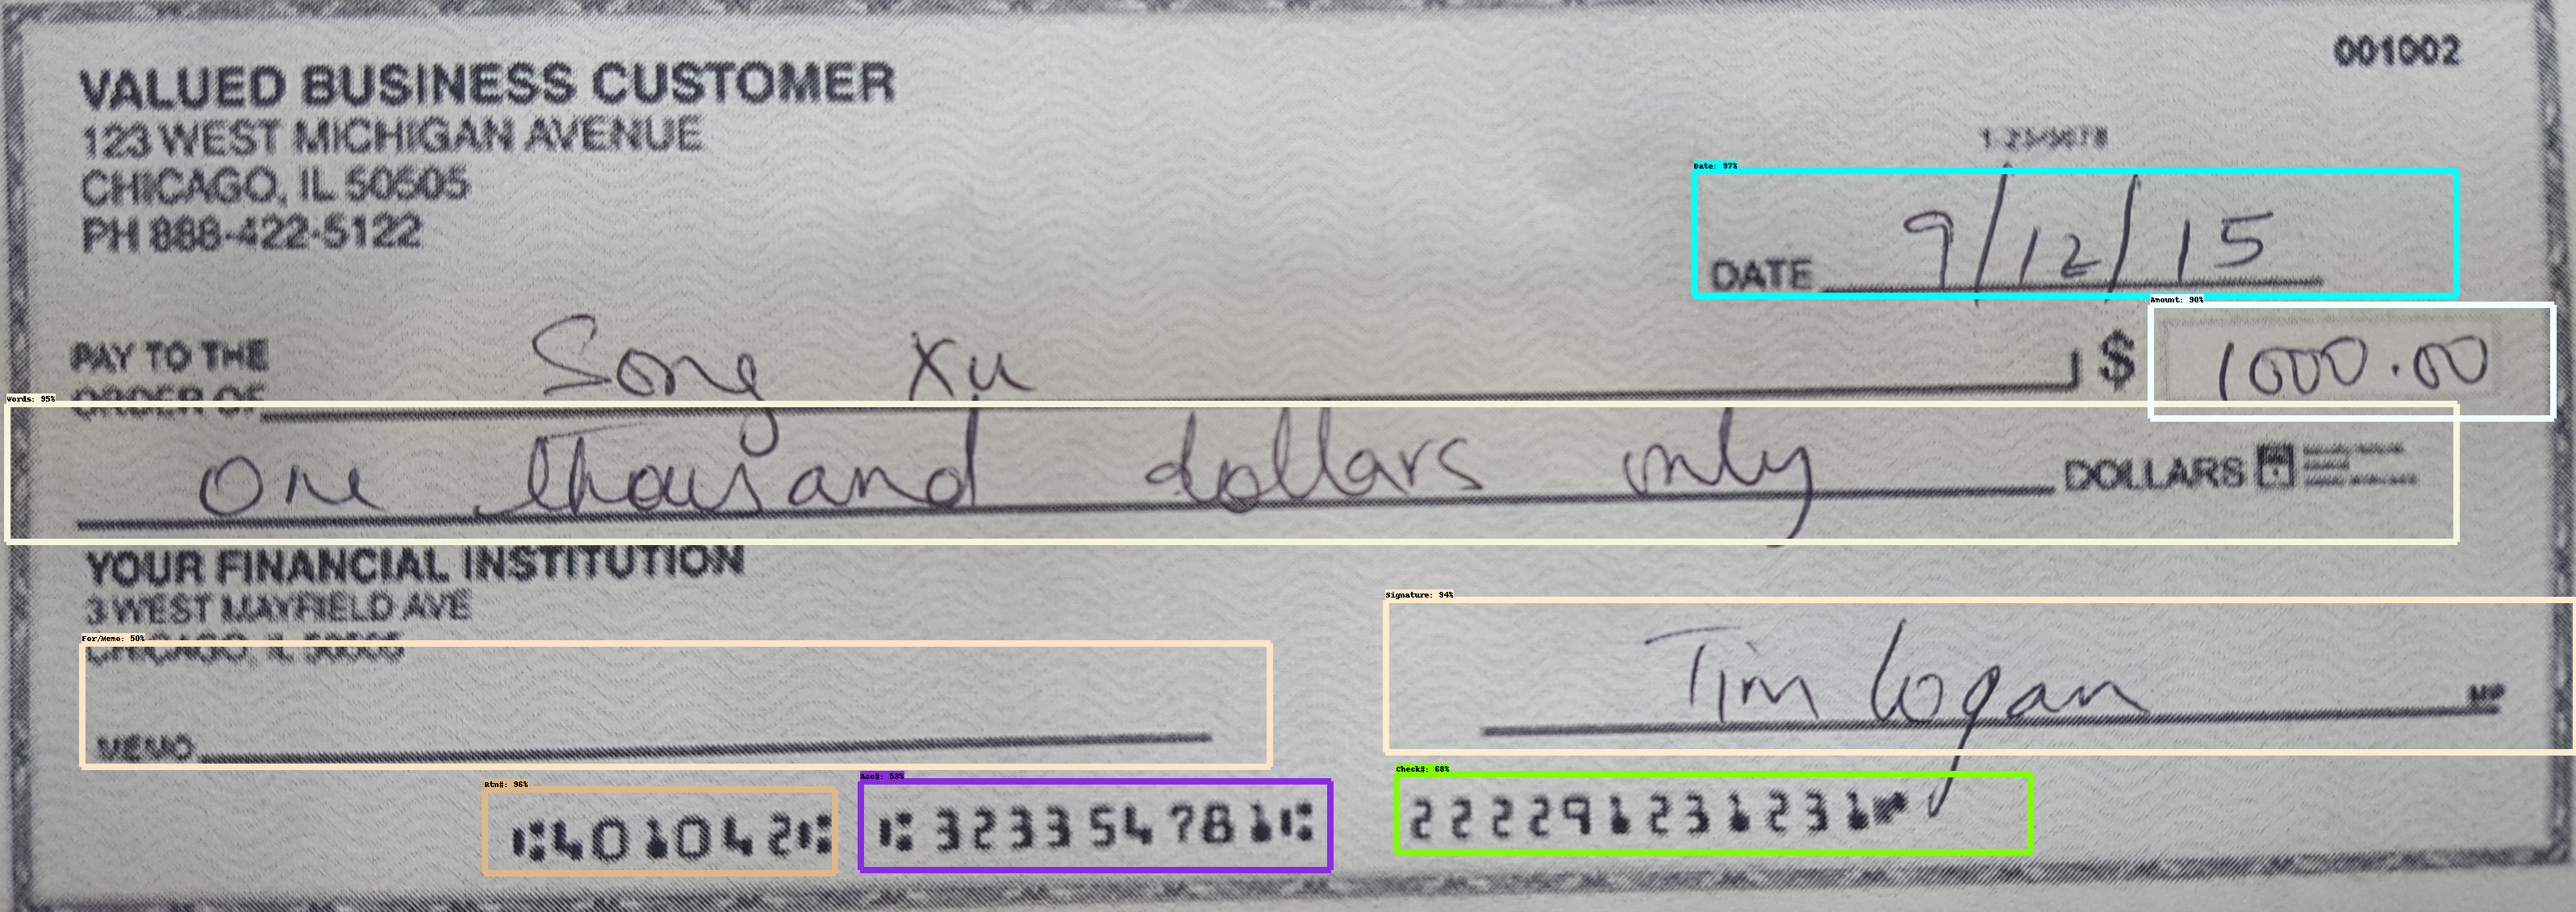 VALUED BUSINESS CUSTOMER
001002
123 WEST MICHIGAN AVENUE
CHICAGO, IL 50505
PH 888-422-5122
1-23/5678
Date: 97%
DATE 9/12/15
Amount: 90%
PAY TO THE
ORDER OF Song Xu $ 1000.00
Words: 95%
One thousand dollars only DOLLARS
YOUR FINANCIAL INSTITUTION
3 WEST MAYFIELD AVE
CHICAGO, IL 50505
Signature: 94%
For/Memo: 50%
Tim Logan MP
MEMO
Rtn#: 96%
Acc#: 53%
Check#: 68%
⑆401042⑆ ⑆323354781⑆ 222291231231⑈